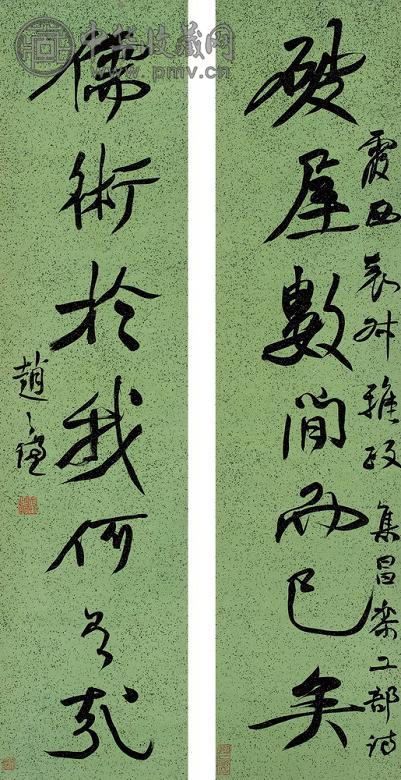 中华收藏网
www.pmv.cn
霞西 叔雅政 集昌黎工部詩
破屋數間而已矣
儒術於我何有哉
趙之謙